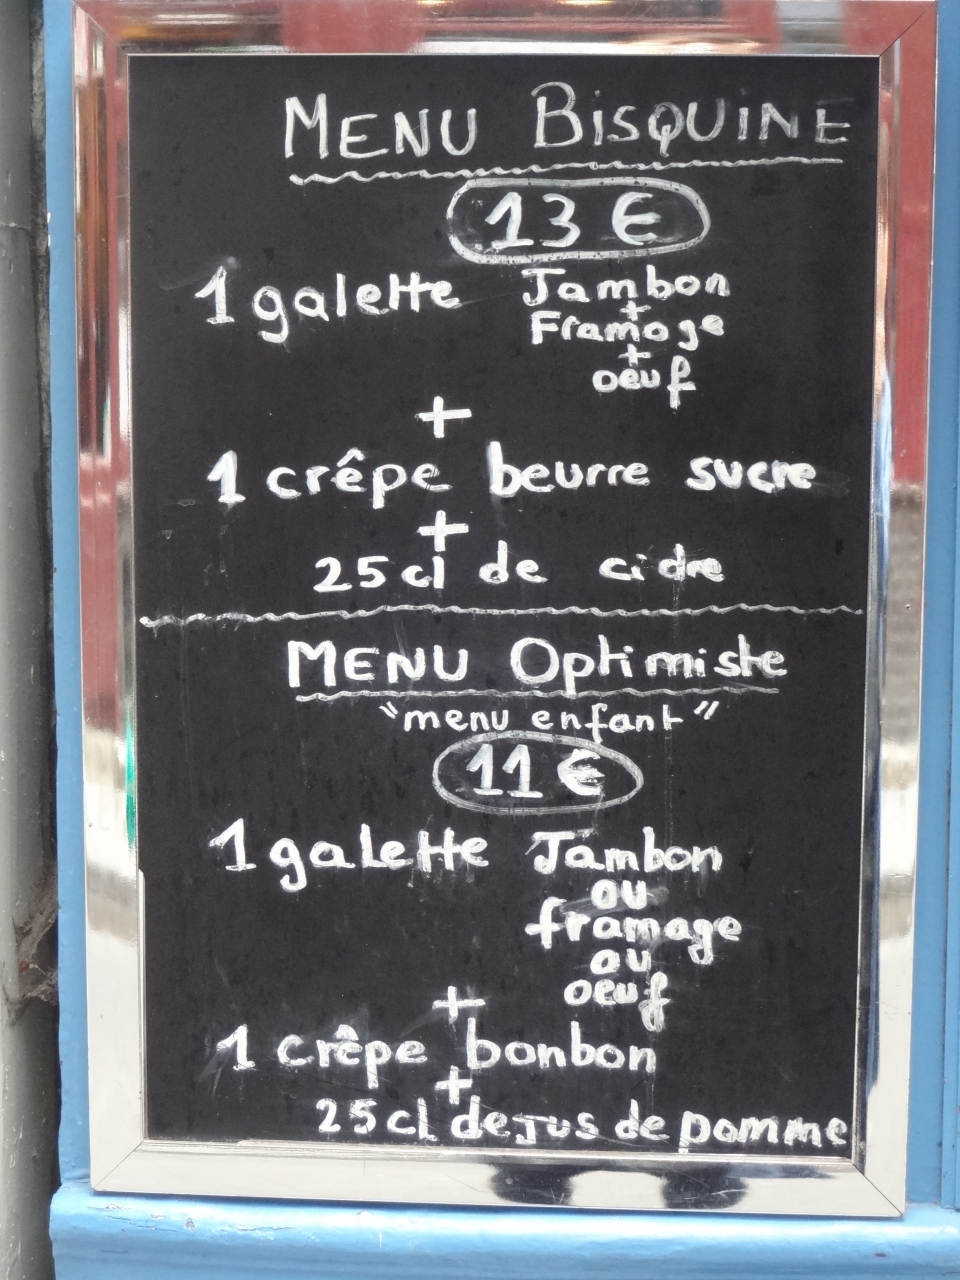 MENU BisQUiNE
13 €
1 galette Jambon
+
Framage
+
oeuf
+
1 crêpe beurre sucre
+
25 cl de cidre
MENU Optimiste
"menu enfant"
11 €
1 galette Jambon
ou
framage
ou
oeuf
+
1 crêpe bonbon
+
25 cl de Jus de pomme